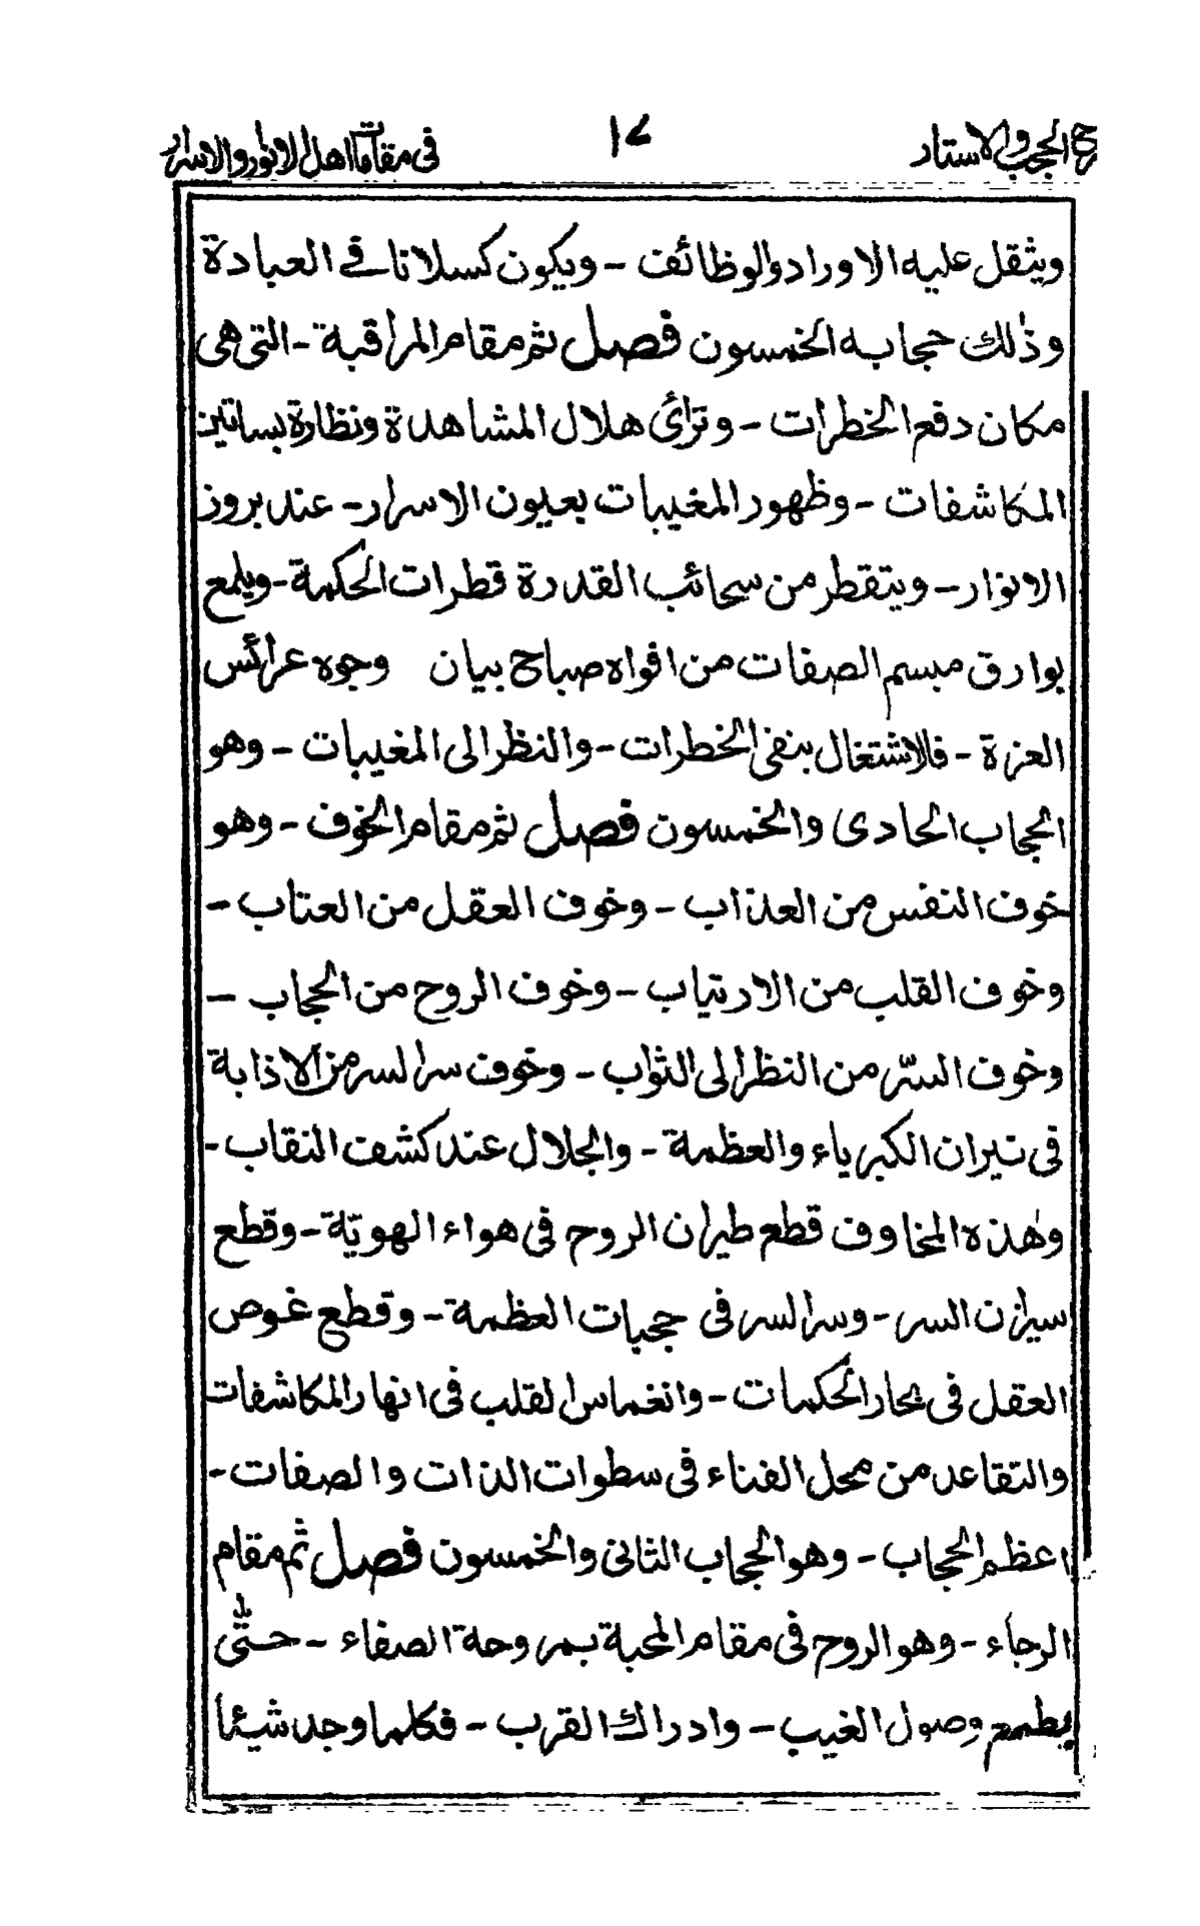 رح الحجب والاستار ١٧ فى مقامات اهل الانوار والاسرار
ويثقل عليه الاوراد والوظائف - ويكون كسلانا فے العبادة
وذٰلك حجابه الخمسون فصل ثم مقام المراقبة - التى هى
مكان دفع الخطرات - وترائى هلال المشاهدة ونظارة بساتين
المكاشفات - وظهور المغيبات بعيون الاسرار - عند بروز
الانوار - ويتقطر من سحائب القدرة قطرات الحكمة - ويلمع
بوارق مبسم الصفات من افواه صباح بيان وجوه عرائس
العزة - فالاشتغال بنفى الخطرات - والنظر الى المغيبات - وهو
الحجاب الحادى والخمسون فصل ثم مقام الخوف - وهو
خوف النفس من العذاب - وخوف العقل من العتاب -
وخوف القلب من الارتياب - وخوف الروح من الحجاب -
وخوف السّر من النظر الى الثواب - وخوف سر السر من الاذابة
فى نيران الكبرياء والعظمة - والجلال عند كشف النقاب -
وهٰذه المخاوف قطع طيران الروح فى هواء الهويّة - وقطع
سيران السر - وسر السر فى حجبات العظمة - وقطع غوص
العقل فى بحار الحكمات - وانغماس القلب فى انهار المكاشفات
والتقاعد من محل الفناء فى سطوات الذات والصفات -
اعظم الحجاب - وهو الحجاب الثانى والخمسون فصل ثم مقام
الرجاء - وهو الروح فى مقام المحبة بمروحة الصفاء - حتّٰى
يطمع وصول الغيب - وادراك القرب - فكلما وجد شيئا